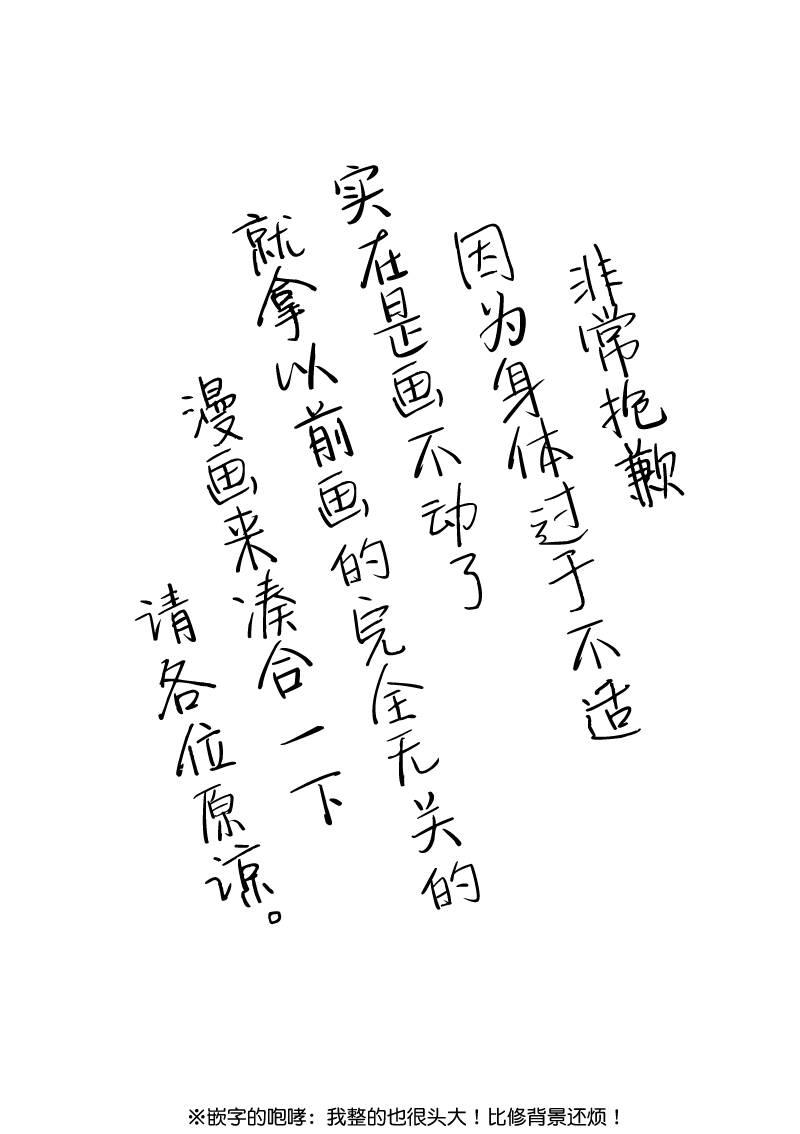 非常抱歉
因为身体过于不适
实在是画不动了
就拿以前画的完全无关的
漫画来凑合一下
请各位原谅。
※嵌字的咆哮：我整的也很头大！比修背景还烦！